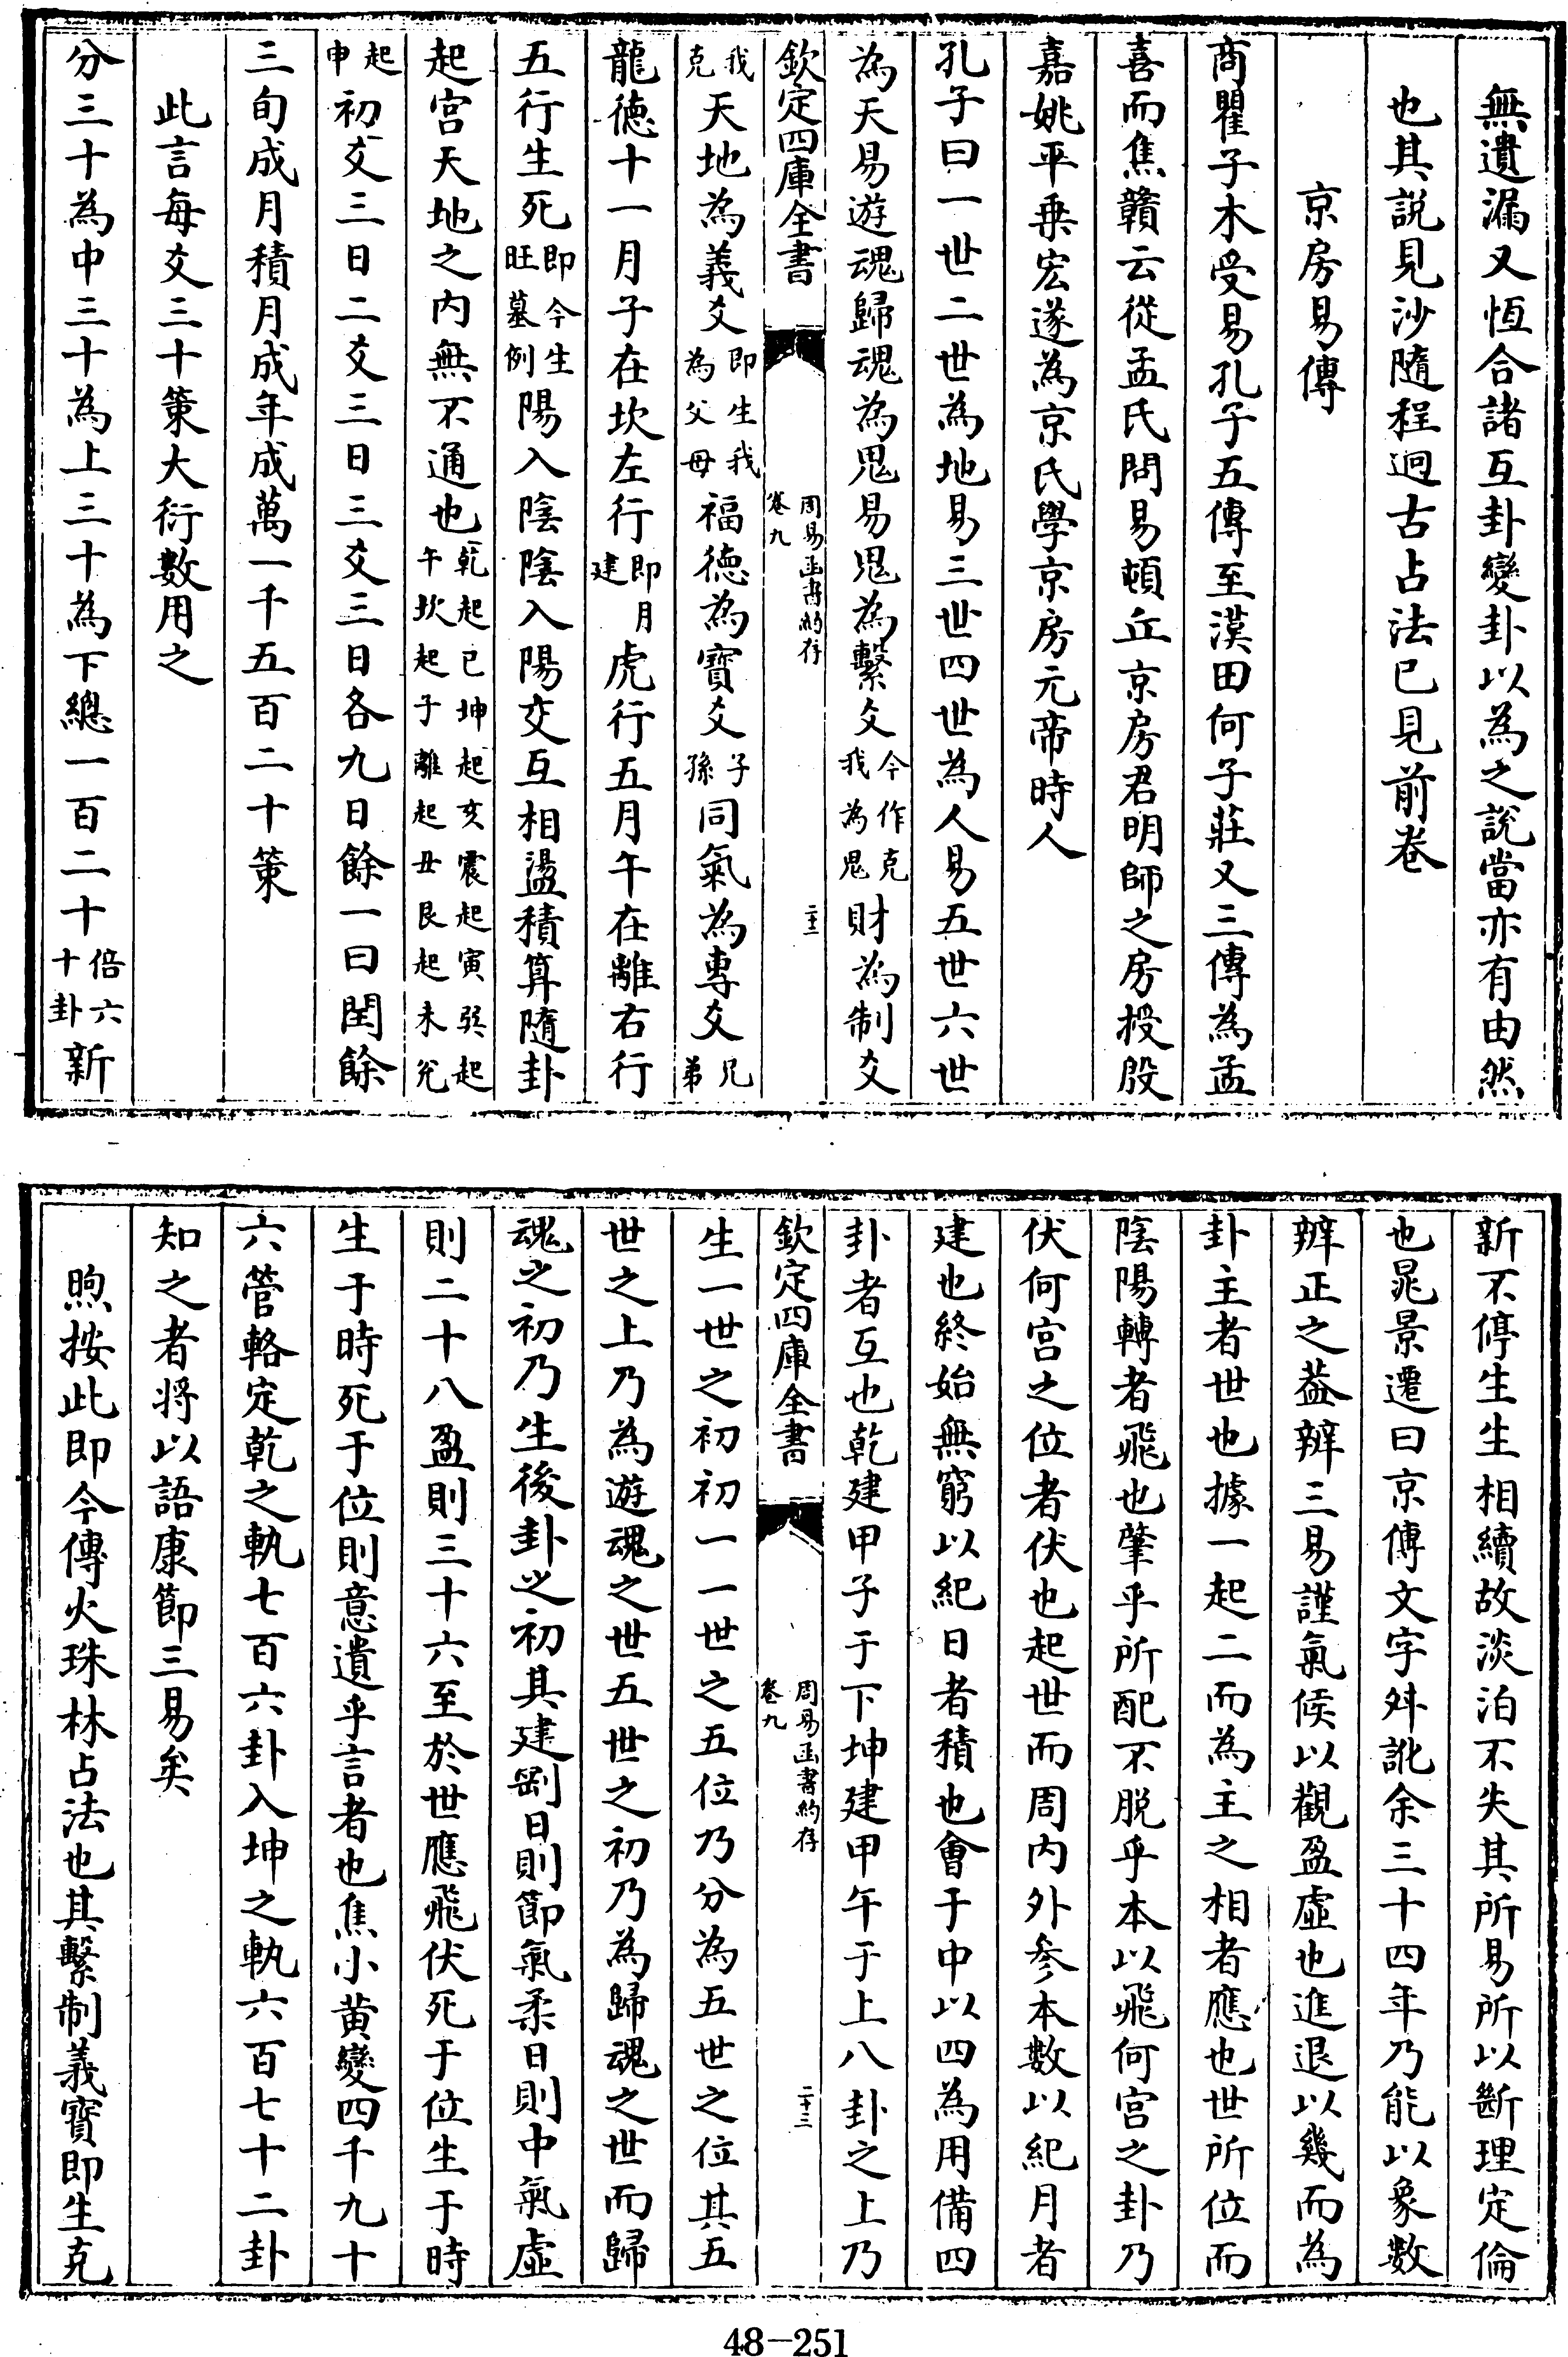 無遺漏又恆合諸互卦變卦以為之說當亦有由然
也其說見沙隨程迥古占法已見前卷
京房易傳
商瞿子木受易孔子五傳至漢田何子莊又三傳為孟
喜而焦贛云從孟氏問易頓丘京房君明師之房授殷
嘉姚平乘宏遂為京氏學京房元帝時人
孔子曰一世二世為地易三世四世為人易五世六世
為天易遊魂歸魂為鬼易鬼為繫爻今作克我為鬼財為制爻
欽定四庫全書 周易函書約存 卷九 二十二
我克天地為義爻即生我為父母福德為寶爻子孫同氣為專爻兄弟
龍德十一月子在坎左行即月建虎行五月午在離右行
五行生死即今生旺墓例陽入陰陰入陽交互相盪積算隨卦
起宮天地之內無不通也乾起巳坤起亥震起寅巽起午坎起子離起丑艮起未兌
起申初爻三日二爻三日三爻三日各九日餘一曰閏餘
三旬成月積月成年成萬一千五百二十策
此言每爻三十策大衍數用之
分三十為中三十為上三十為下總一百二十倍六十卦新
新不停生生相續故淡泊不失其所易所以斷理定倫
也晁景遷曰京傳文字舛訛余三十四年乃能以象數
辨正之葢辨三易謹氣候以觀盈虛也進退以幾而為
卦主者世也據一起二而為主之相者應也世所位而
陰陽轉者飛也肇乎所配不脫乎本以飛何宮之卦乃
伏何宮之位者伏也起世而周內外參本數以紀月者
建也終始無窮以紀日者積也會于中以四為用備四
卦者互也乾建甲子于下坤建甲午于上八卦之上乃
欽定四庫全書 周易函書約存 卷九 二十三
生一世之初初一一世之五位乃分為五世之位其五
世之上乃為遊魂之世五世之初乃為歸魂之世而歸
魂之初乃生後卦之初其建剛日則節氣柔日則中氣虛
則二十八盈則三十六至於世應飛伏死于位生于時
生于時死于位則意遺乎言者也焦小黃變四千九十
六管輅定乾之軌七百六卦入坤之軌六百七十二卦
知之者將以語康節三易矣
煦按此即今傳火珠林占法也其繫制義寶即生克
48-251